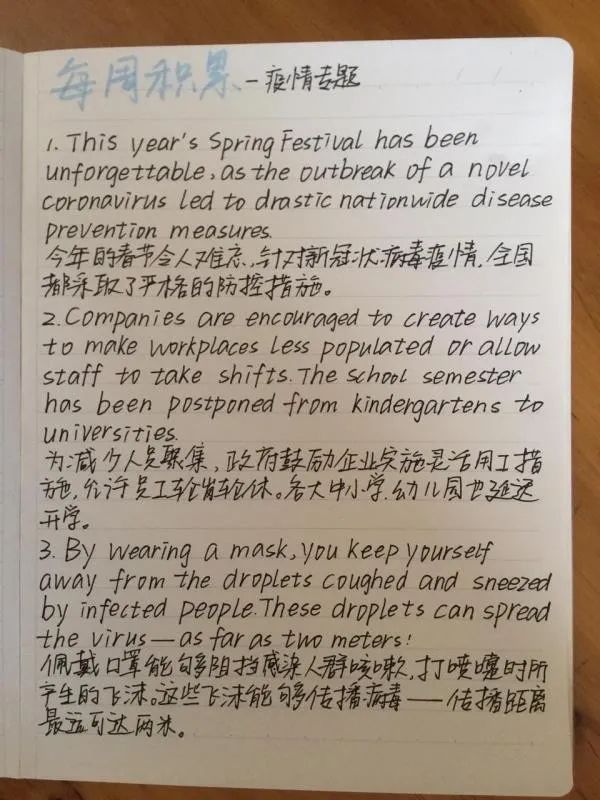 每周积累-疫情专题
1. This year's Spring Festival has been
unforgettable, as the outbreak of a novel
coronavirus led to drastic nationwide disease
prevention measures.
今年的春节令人难忘,针对新冠状病毒疫情,全国
都采取了严格的防控措施。
2. Companies are encouraged to create ways
to make workplaces less populated or allow
staff to take shifts. The school semester
has been postponed from kindergartens to
universities.
为减少人员聚集,政府鼓励企业实施灵活用工措
施,允许员工轮岗轮休。各大中小学,幼儿园也延迟
开学。
3. By wearing a mask, you keep yourself
away from the droplets coughed and sneezed
by infected people. These droplets can spread
the virus — as far as two meters!
佩戴口罩能够阻挡感染人群咳嗽,打喷嚏时所
产生的飞沫。这些飞沫能够传播病毒——传播距离
最远可达两米。